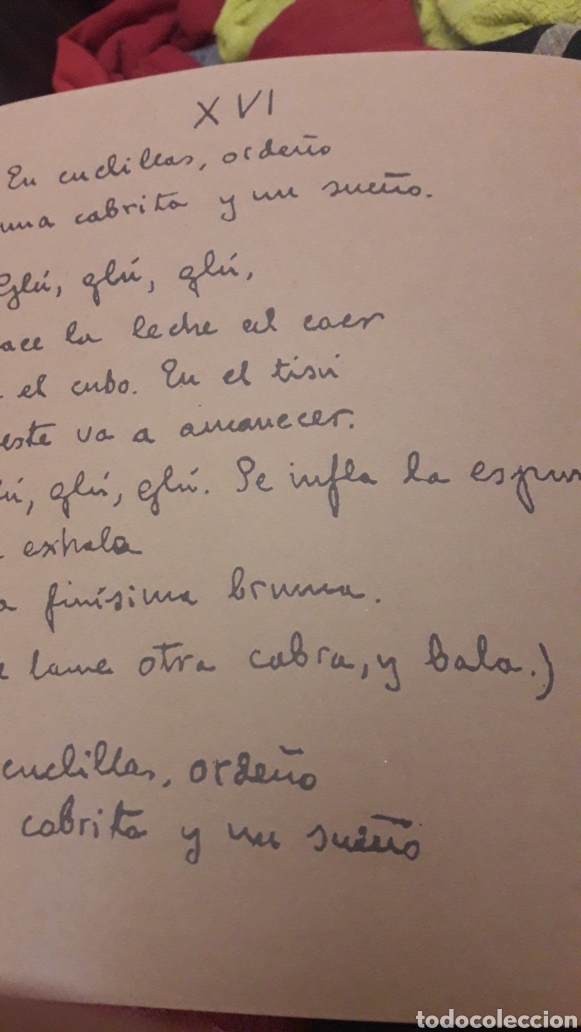 XVI
En cuclillas, ordeño
una cabrita y un sueño.
Glú, glú, glú,
ace la leche al caer
el cubo. En el tisú
este va a amanecer.
lú, glú, glú. Se infla la espum
exhala
a finísima bruma.
e lame otra cabra, y bala.)
cuclillas, ordeño
cabrita y un sueño
todocoleccion